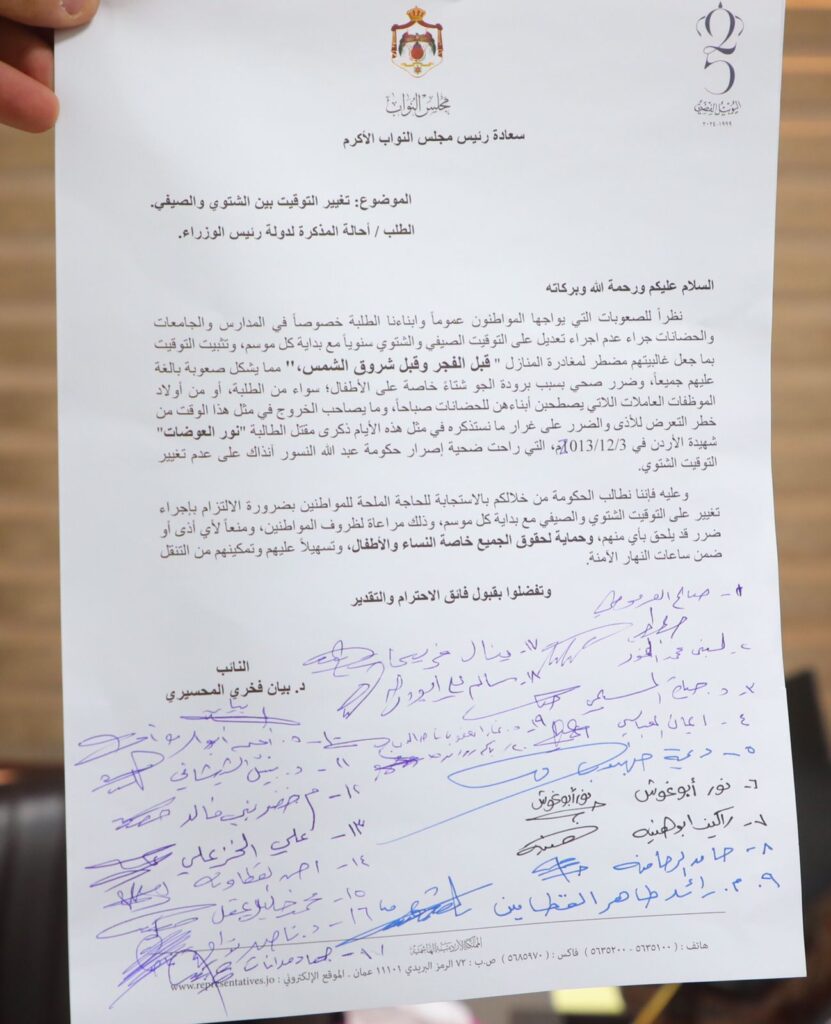 مجلس النواب
25
اليوبيل الفضي
١٩٩٩-٢٠٢٤
سعادة رئيس مجلس النواب الأكرم
الموضوع: تغيير التوقيت بين الشتوي والصيفي.
الطلب / أحالة المذكرة لدولة رئيس الوزراء.
السلام عليكم ورحمة الله وبركاته
نظراً للصعوبات التي يواجها المواطنون عموماً وابناءنا الطلبة خصوصاً في المدارس والجامعات
والحضانات جراء عدم اجراء تعديل على التوقيت الصيفي والشتوي سنوياً مع بداية كل موسم، وتثبيت التوقيت
بما جعل غالبيتهم مضطر لمغادرة المنازل " قبل الفجر وقبل شروق الشمس،" مما يشكل صعوبة بالغة
عليهم جميعاً، وضرر صحي بسبب برودة الجو شتاءً خاصة على الأطفال؛ سواء من الطلبة، أو من أولاد
الموظفات العاملات اللاتي يصطحبن أبناءهن للحضانات صباحاً، وما يصاحب الخروج في مثل هذا الوقت من
خطر التعرض للأذى والضرر على غرار ما نستذكره في مثل هذه الأيام ذكرى مقتل الطالبة "نور العوضات"
شهيدة الأردن في 2013/12/3م، التي راحت ضحية إصرار حكومة عبد الله النسور أنذاك على عدم تغيير
التوقيت الشتوي.
وعليه فإننا نطالب الحكومة من خلالكم بالاستجابة للحاجة الملحة للمواطنين بضرورة الالتزام بإجراء
تغيير على التوقيت الشتوي والصيفي مع بداية كل موسم، وذلك مراعاة لظروف المواطنين، ومنعاً لأي أذى أو
ضرر قد يلحق بأي منهم، وحماية لحقوق الجميع خاصة النساء والأطفال، وتسهيلاً عليهم وتمكينهم من التنقل
ضمن ساعات النهار الأمنة.
وتفضلوا بقبول فائق الاحترام والتقدير
النائب
د. بيان فخري المحسيري
١- صالح العرموطي
٢-
٣- د.
٤- ايمان العباسي
٥- ديمة
٦- نور أبوغوش
نور أبوغوش
٧- راكين ابوهنيه
٨- حامد الرحامنة
٩- م. رائد طاهر القطامين
١٠- د.
١١- د. نبيل الشيشاني
١٢- م خضر بني خالد
١٣- علي الخزعلي
١٤-
١٥- محمد خليل عقل
١٦- د. ناصر
١٧- ينال فريحات
١٨- سالم
١٩- د.
جهاد مدانات
المملكة الأردنية الهاشمية
هاتف : ( ٥٦٣٥١٠٠ - ٥٦٣٥٢٠٠ ) فاكس : ( ٥٦٨٥٩٧٠ ) ص.ب : ٧٢ الرمز البريدي ١١١٠١ عمان - الموقع الإلكتروني : www.representatives.jo